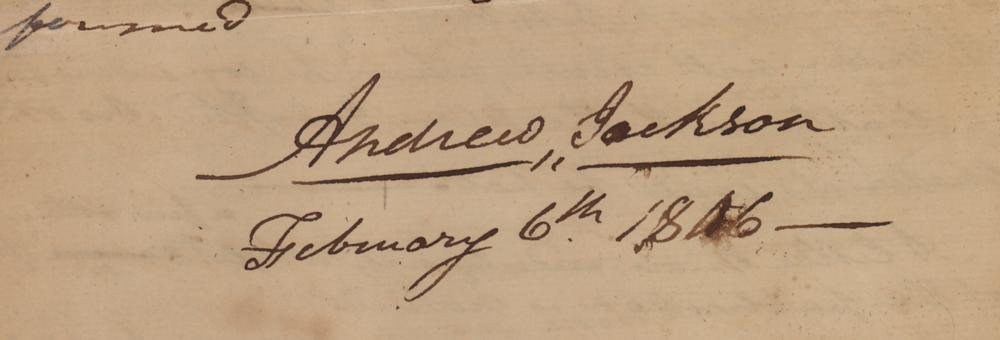 formed
Andrew,, Jackson
February 6th 1806 —